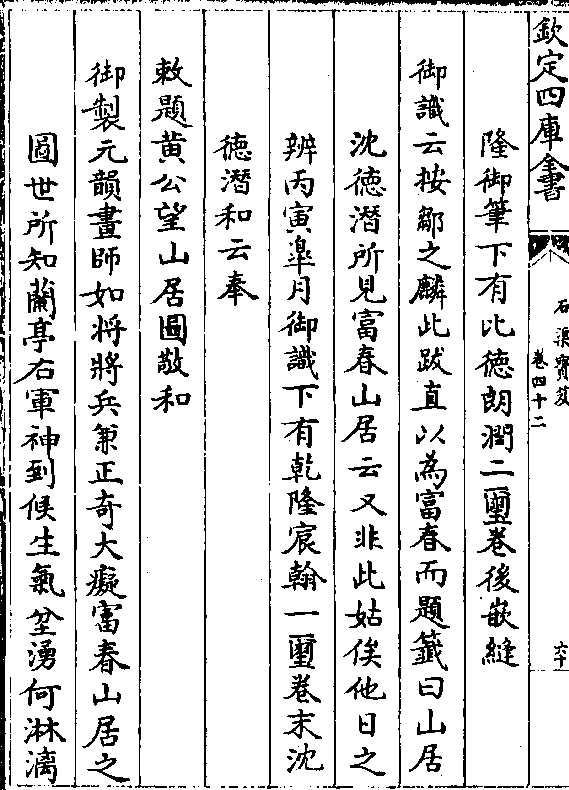 欽定四庫全書
石渠寶笈
卷四十二
六十
隆御筆下有比德朗潤二璽卷後嵌縫
御識云按鄒之麟此跋直以為富春而題籤曰山居
沈德潛所見富春山居云又非此姑俟他日之
辨丙寅臯月御識下有乾隆宸翰一璽卷末沈
德潛和云奉
敕題黄公望山居圖敬和
御製元韻畫師如將將兵兼正奇大癡富春山居之
圖世所知蘭亭右軍神到候生氣坌湧何淋漓